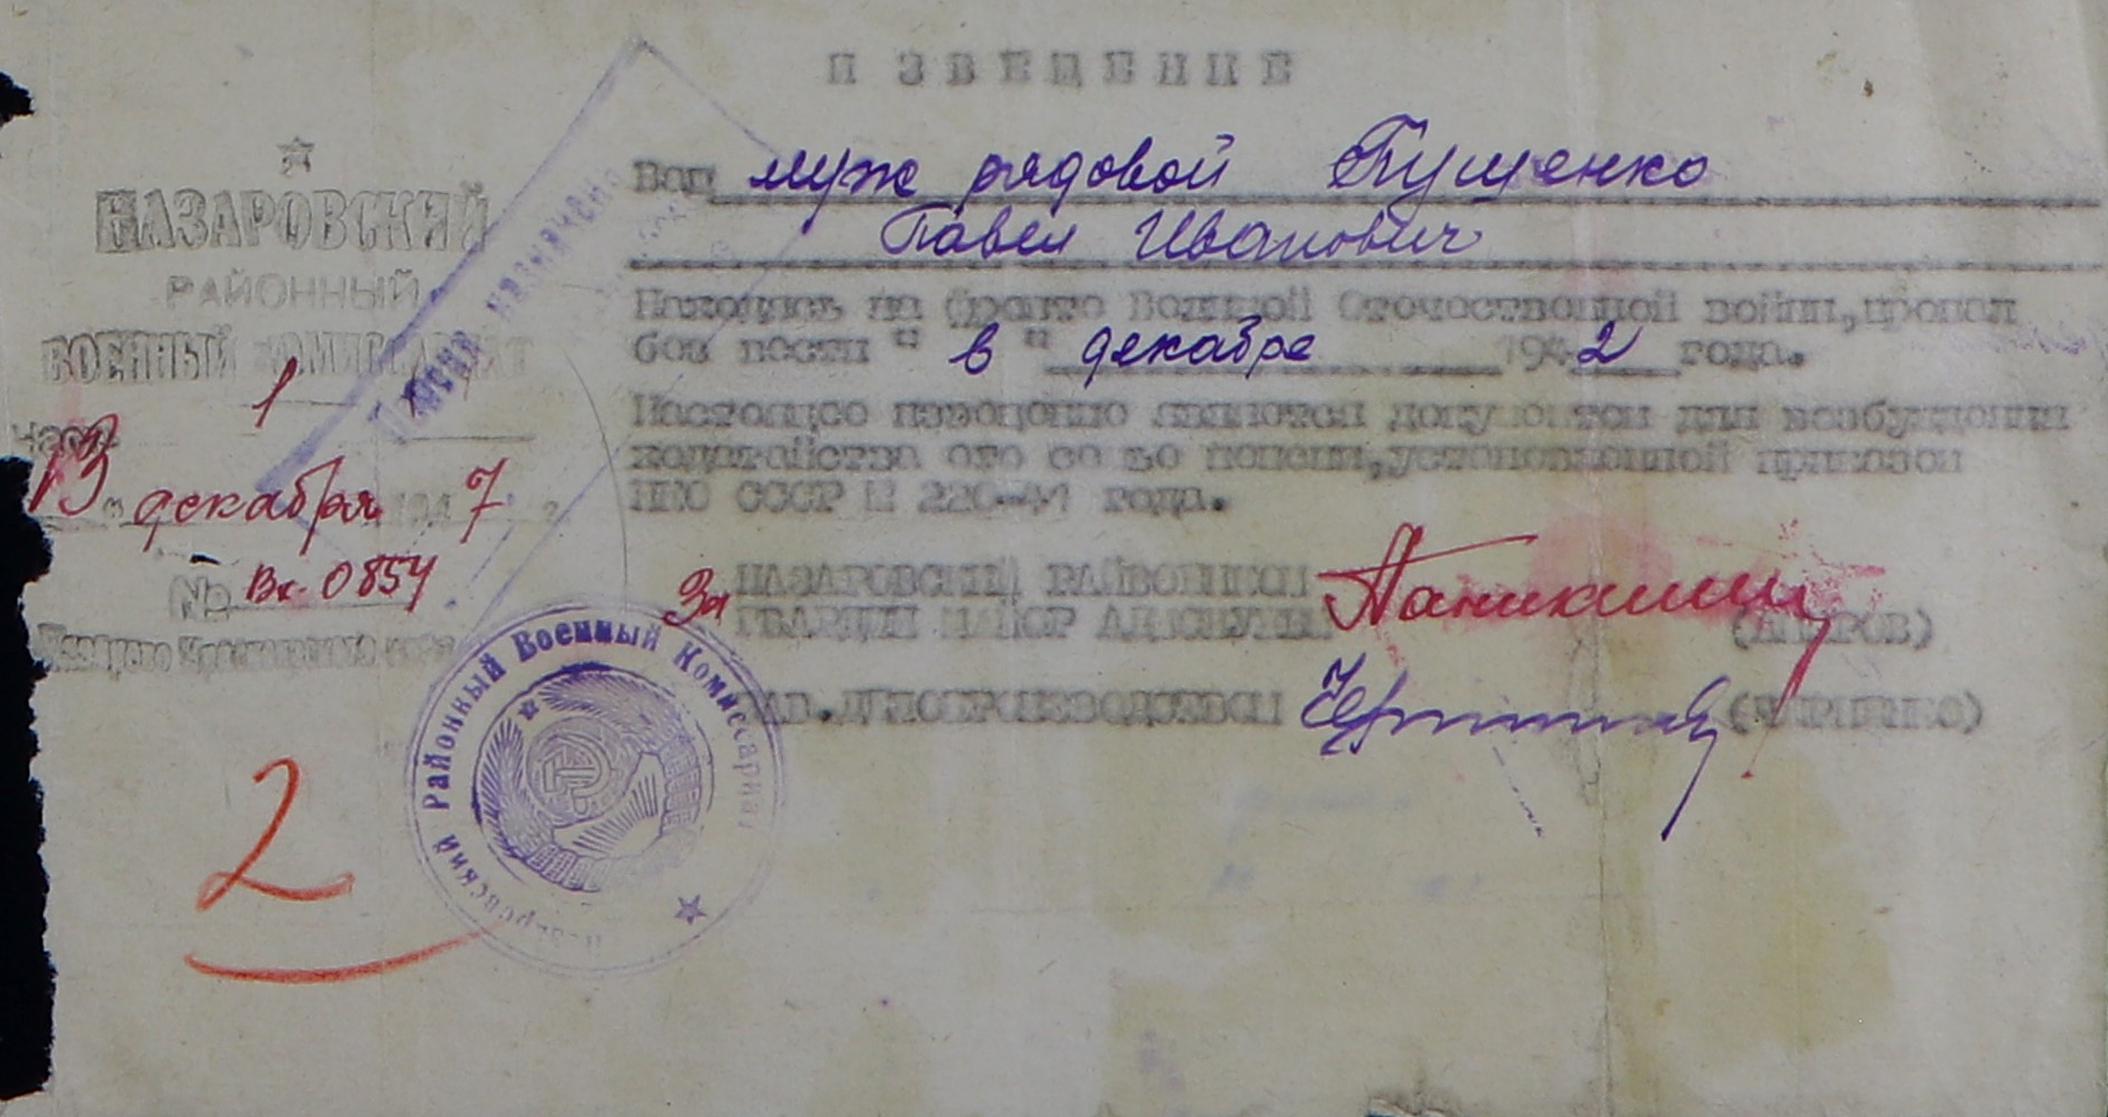 ИЗВЕЩЕНИЕ
Ваш муж рядовой Пущенко
Павел Иванович
Находясь на фронте Великой Отечественной войны, пропал
без вести " в " декабре 1942 года.
Настоящее извещение является документом для возбуждения
ходатайства о пенсии, установленной приказом
НКО СССР № 220-41 года.
За НАЗАРОВСКИЙ РАЙВОЕНКОМ
ГВАРДИИ МАЙОР АДМ.СЛУЖБЫ
ЗАВ.ДЕЛОПРОИЗВОДСТВОМ
НАЗАРОВСКИЙ
РАЙОННЫЙ
ВОЕННЫЙ КОМИССАРИАТ
Часть 1
13 " декабря 1947 г.
№ Вк-0854
Назарово Красноярского края
2
Пенсия назначена
Назаровский Районный Военный Комиссариат